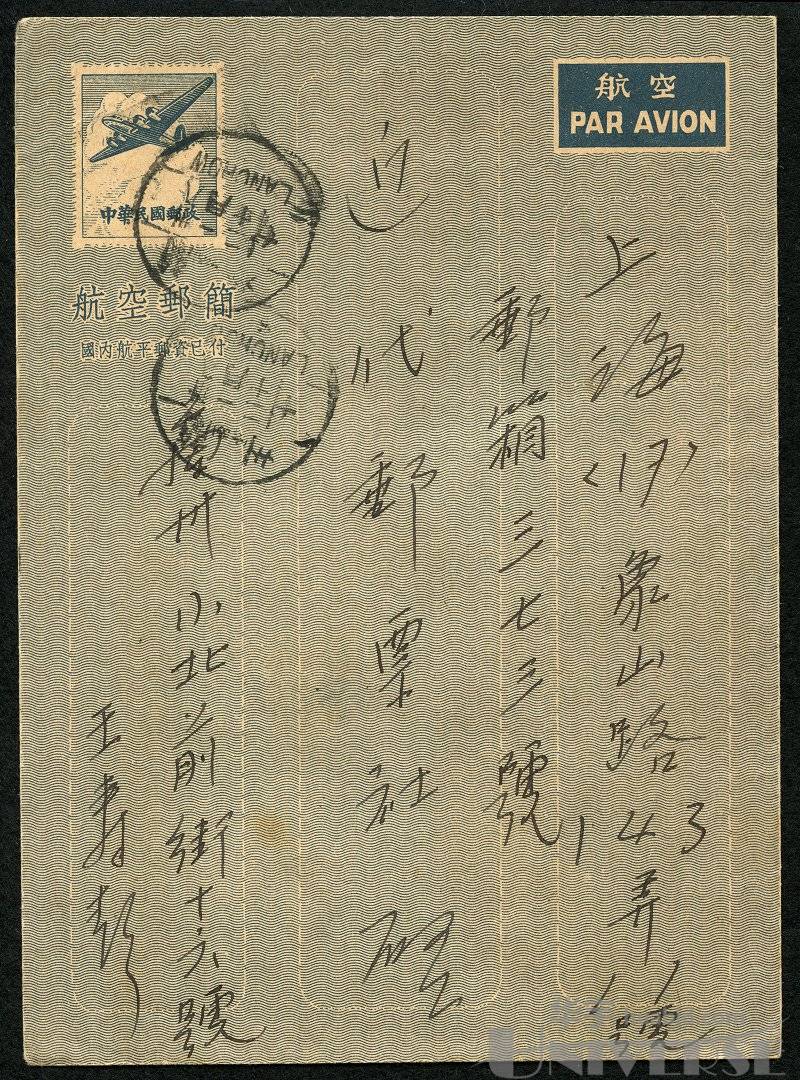 航空
PAR AVION
中華民國郵政
航空郵簡
國內航平郵資已付
LANCHOW
LANCHOW
上海(19)象山路143弄1號
郵箱三七三號
近代郵票社 啟
蘭州小北前街十六號
王壽彭
UNIVERSE